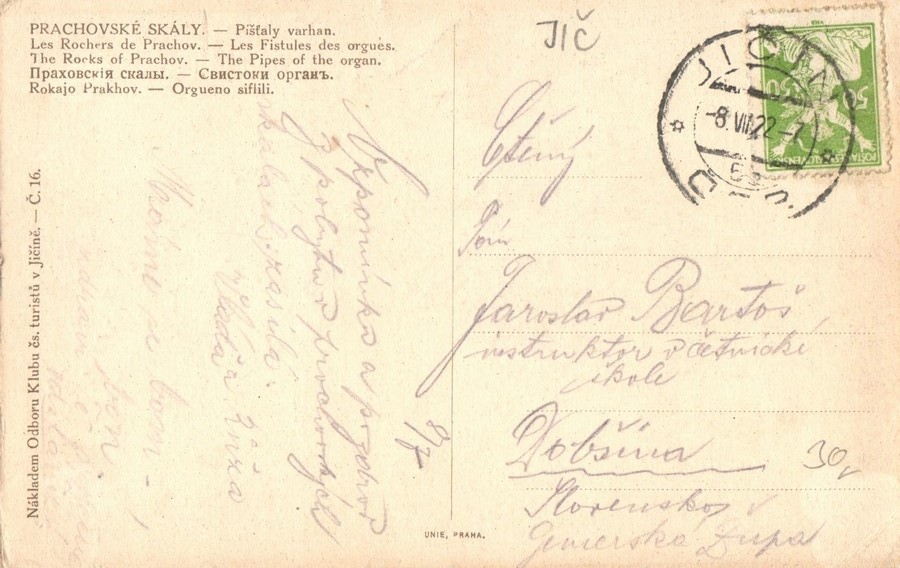 PRACHOVSKÉ SKÁLY. — Píšťaly varhan.
Les Rochers de Prachov. — Les Fistules des orgues.
The Rocks of Prachov. — The Pipes of the organ.
Праховскія скалы. — Свистоки органъ.
Rokajo Prakhov. — Orgueno siflili.
JIČ
JIČÍN
-8.VII.22-7
50
POSTA
Nákladem Odboru Klubu čs. turistů v Jičíně. — Č. 16.
Vzpomínka a pozdrav
z pobytu v prachovských
skalách zasílá
Vláďa
8/7
Ctěný
Pán
Jaroslav Bartoš
instruktor v četnické
škole
Dobšina
Slovensko
Gemerska župa
30,
UNIE, PRAHA.